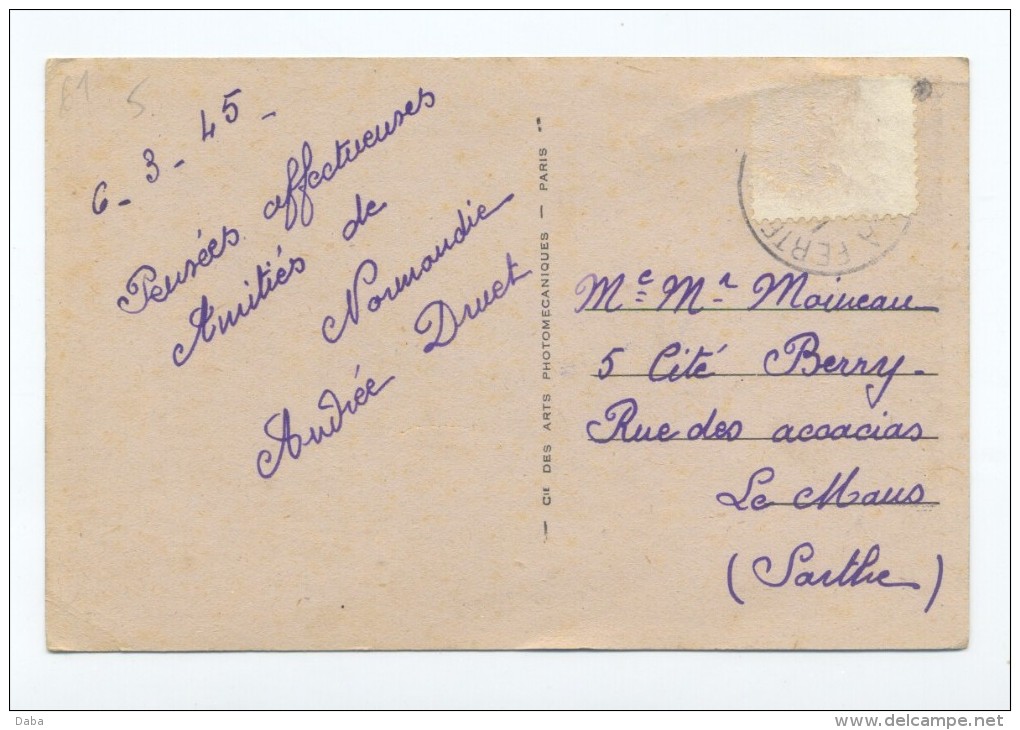 61 5.
6-3-45-
Pensées affectueuses
Amitiés de
Normandie
Andrée Druet
— CIE DES ARTS PHOTOMECANIQUES — PARIS —
A FERTE
Me Mr Moineau
5 Cité Berry-
Rue des acoacias
Le Mans
(Sarthe)
Daba
www.delcampe.net